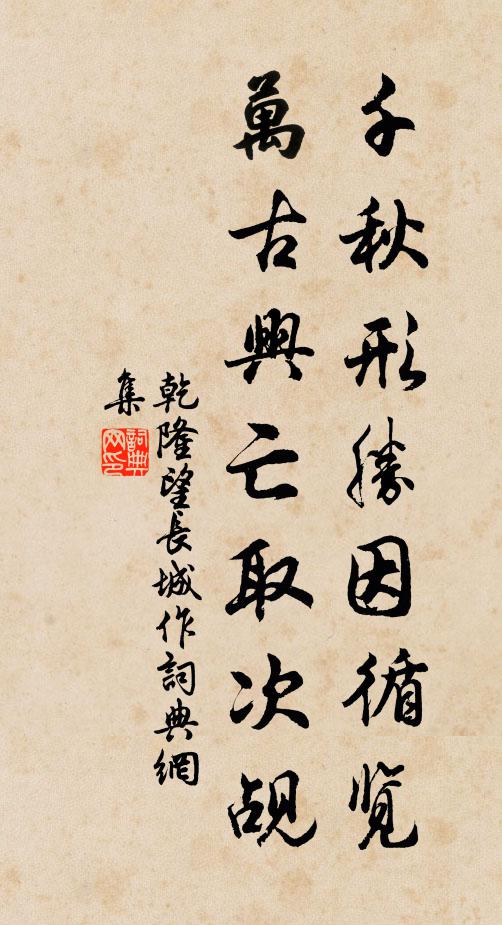 千秋形勝因循覽
萬古興亡取次覘
乾隆望長城作詞典網
集
詞典
网印